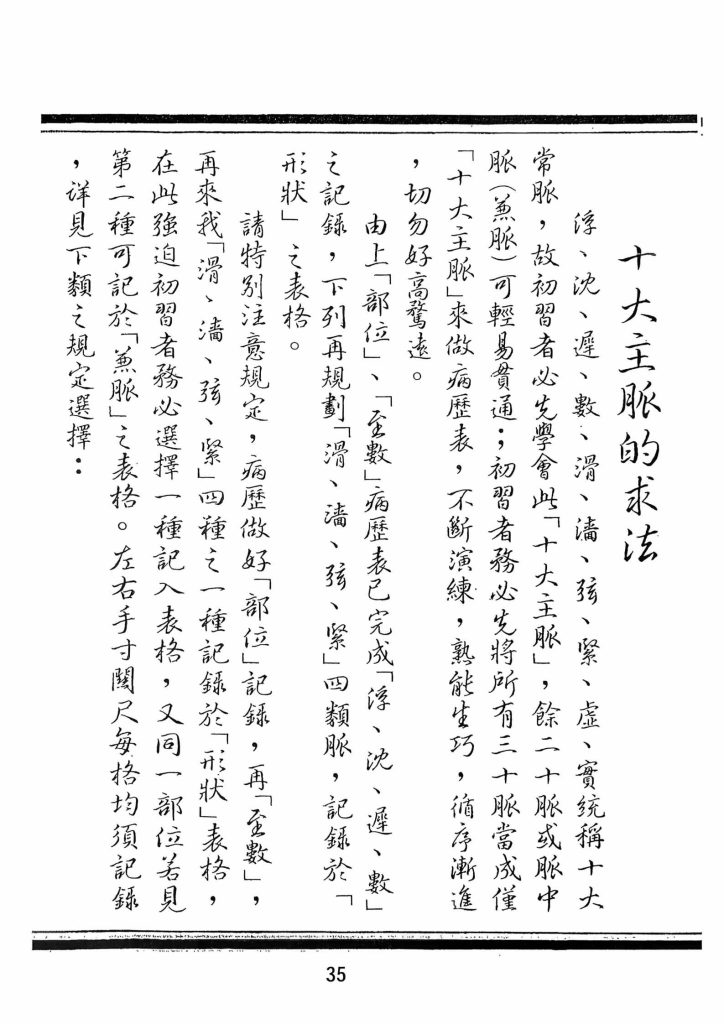 十大主脈的求法
浮、沈、遲、數、滑、濇、弦、緊、虛、實統稱十大
常脈，故初習者必先學會此「十大主脈」，餘二十脈或脈中
脈（兼脈）可輕易貫通；初習者務必先將所有三十脈當成僅
「十大主脈」來做病歷表，不斷演練，熟能生巧，循序漸進
，切勿好高騖遠。
由上「部位」、「至數」病歷表已完成「浮、沈、遲、數」
之記錄，下列再規劃「滑、濇、弦、緊」四類脈，記錄於「
形狀」之表格。
請特別注意規定，病歷做好「部位」記錄，再「至數」，
再來我「滑、濇、弦、緊」四種之一種記錄於「形狀」表格，
在此強迫初習者務必選擇一種記入表格，又同一部位若見
第二種可記於「兼脈」之表格。左右手寸關尺每格均須記錄
，詳見下類之規定選擇：
35